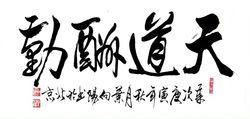 天道酬勤
歲次庚寅年秋月葉向陽书於北京